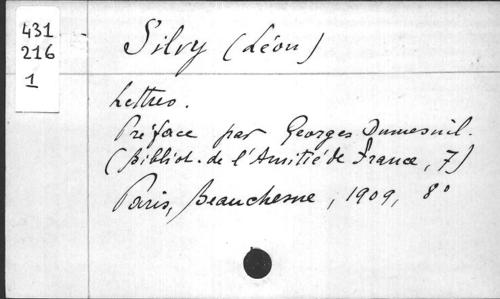 431
216
1
Silvy (Léon)
Lettres.
Préface par Georges Dumesnil.
(Bibliot. de l'Amitié de France, 7)
Paris, Beauchesne, 1909, 8°